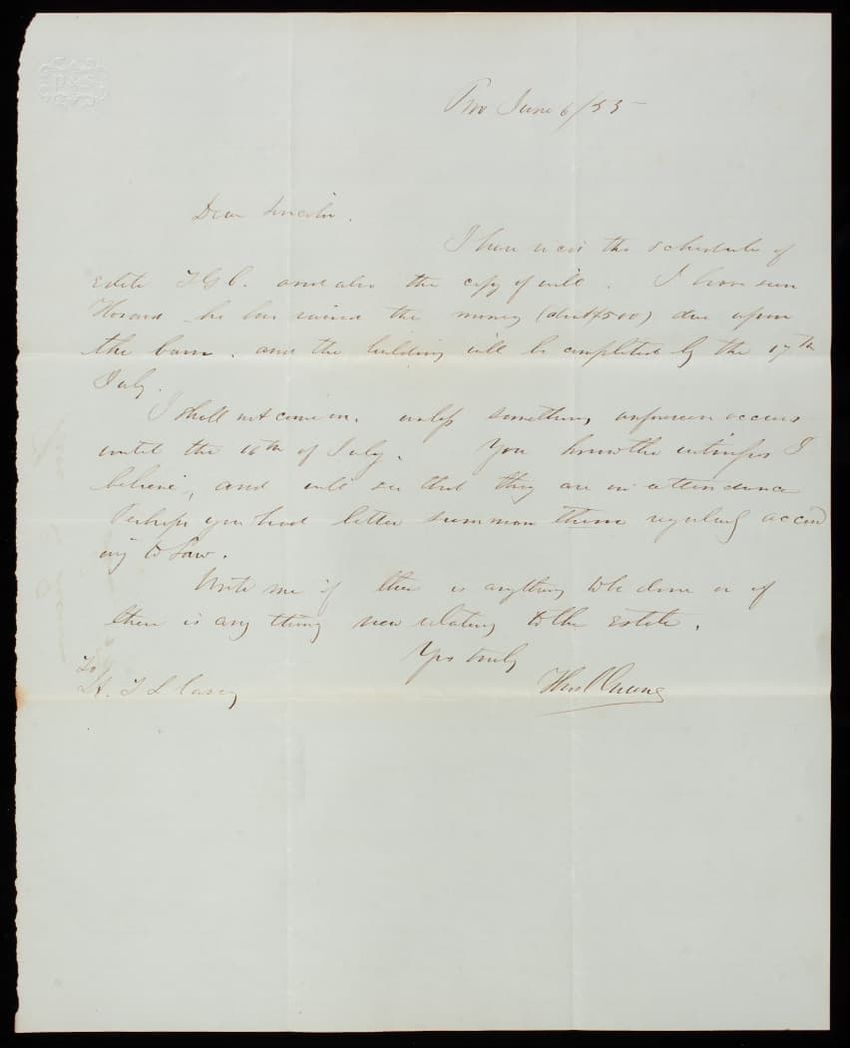 Pro June 6/55
Dear Lincoln.
I have recd the schedule of
Estate T G C. and also the copy of will. I have seen
he has raised the money (about $500) due upon
the barn. and the building will be completed by the 17th
July.
I shall not come on. unless something unforseen occurs
until the 16th of July. You know the witnesses I
believe, and will see that they are in attendance
Perhaps you had better summon them regularly accord
ing to Law.
Write me if there is anything to be done or if
there is any thing new relating to the Estate.
Yrs truly
To
Lt. T L Casey